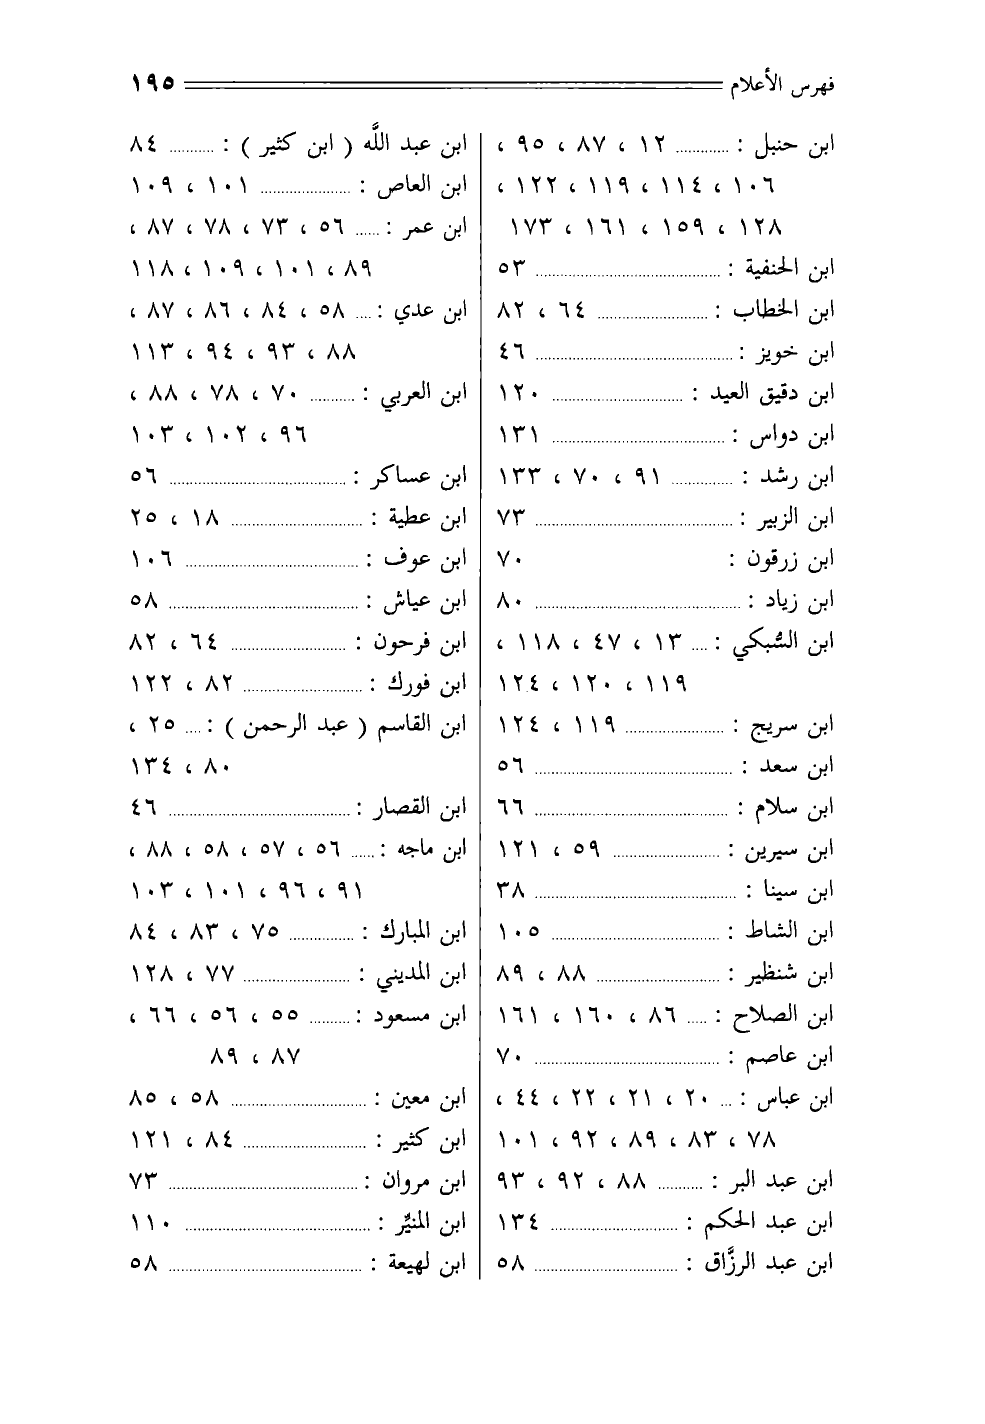 فهرس الأعلام ١٩٥
ابن حنبل : ............. ١٢ ، ٨٧ ، ٩٥ ،
١٠٦ ، ١١٤ ، ١١٩ ، ١٢٢ ،
١٢٨ ، ١٥٩ ، ١٦١ ، ١٧٣
ابن الحنفية : ............. ٥٣
ابن الخطاب : ............. ٦٤ ، ٨٢
ابن خويز : ............. ٤٦
ابن دقيق العيد : ............. ١٢٠
ابن دواس : ............. ١٣١
ابن رشد : ............. ٩١ ، ٧٠ ، ١٣٣
ابن الزبير : ............. ٧٣
ابن زرقون : ٧٠
ابن زياد : ............. ٨٠
ابن السُّبكي : .... ١٣ ، ٤٧ ، ١١٨ ،
١١٩ ، ١٢٠ ، ١٢٤
ابن سريج : ............. ١١٩ ، ١٢٤
ابن سعد : ............. ٥٦
ابن سلام : ............. ٦٦
ابن سيرين : ............. ٥٩ ، ١٢١
ابن سينا : ............. ٣٨
ابن الشاط : ............. ١٠٥
ابن شنظير : ............. ٨٨ ، ٨٩
ابن الصلاح : ..... ٨٦ ، ١٦٠ ، ١٦١
ابن عاصم : ............. ٧٠
ابن عباس : ... ٢٠ ، ٢١ ، ٢٢ ، ٤٤ ،
٧٨ ، ٨٣ ، ٨٩ ، ٩٢ ، ١٠١
ابن عبد البر : .......... ٨٨ ، ٩٢ ، ٩٣
ابن عبد الحكم : ............. ١٣٤
ابن عبد الرزَّاق : ............. ٥٨
ابن عبد اللَّه ( ابن كثير ) : ........... ٨٤
ابن العاص : ............. ١٠١ ، ١٠٩
ابن عمر : ...... ٥٦ ، ٧٣ ، ٧٨ ، ٨٧ ،
٨٩ ، ١٠١ ، ١٠٩ ، ١١٨
ابن عدي : .... ٥٨ ، ٨٤ ، ٨٦ ، ٨٧ ،
٨٨ ، ٩٣ ، ٩٤ ، ١١٣
ابن العربي : ........... ٧٠ ، ٧٨ ، ٨٨ ،
٩٦ ، ١٠٢ ، ١٠٣
ابن عساكر : ............. ٥٦
ابن عطية : ............. ١٨ ، ٢٥
ابن عوف : ............. ١٠٦
ابن عياش : ............. ٥٨
ابن فرحون : ............. ٦٤ ، ٨٢
ابن فورك : ............. ٨٢ ، ١٢٢
ابن القاسم ( عبد الرحمن ) : .... ٢٥ ،
٨٠ ، ١٣٤
ابن القصار : ............. ٤٦
ابن ماجه : ...... ٥٦ ، ٥٧ ، ٥٨ ، ٨٨ ،
٩١ ، ٩٦ ، ١٠١ ، ١٠٣
ابن المبارك : ............. ٧٥ ، ٨٣ ، ٨٤
ابن المديني : ............. ٧٧ ، ١٢٨
ابن مسعود : .......... ٥٥ ، ٥٦ ، ٦٦ ،
٨٧ ، ٨٩
ابن معين : ............. ٥٨ ، ٨٥
ابن كثير : ............. ٨٤ ، ١٢١
ابن مروان : ............. ٧٣
ابن المنيِّر : ............. ١١٠
ابن لهيعة : ............. ٥٨